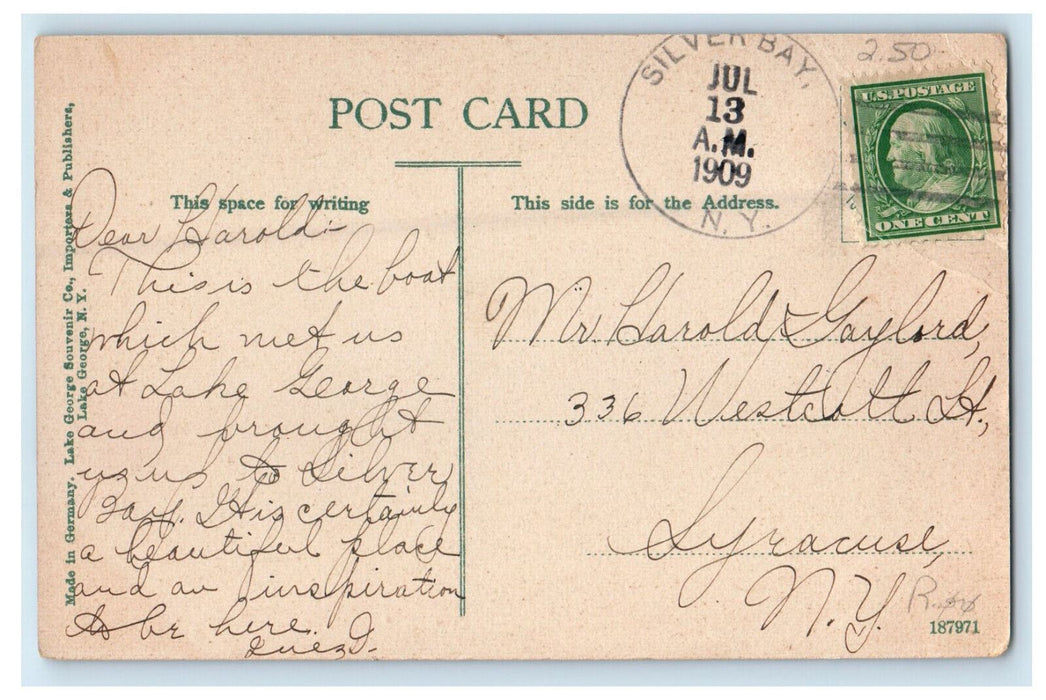 POST CARD
SILVER BAY,
JUL
13
A.M.
1909
N.Y.
2.50
U.S. POSTAGE
ONE CENT
This space for writing
This side is for the Address.
Made in Germany. Lake George Souvenir Co., Importers & Publishers,
Lake George, N. Y.
Dear Harold:-
This is the boat
which met us
at Lake George
and brought
us us to Silver
Bay. It is certainly
a beautiful place
and an inspiration
to be here.
Inez I.
Mr. Harold Gaylord,
336 Westcott St.,
Syracuse,
N.Y.
187971